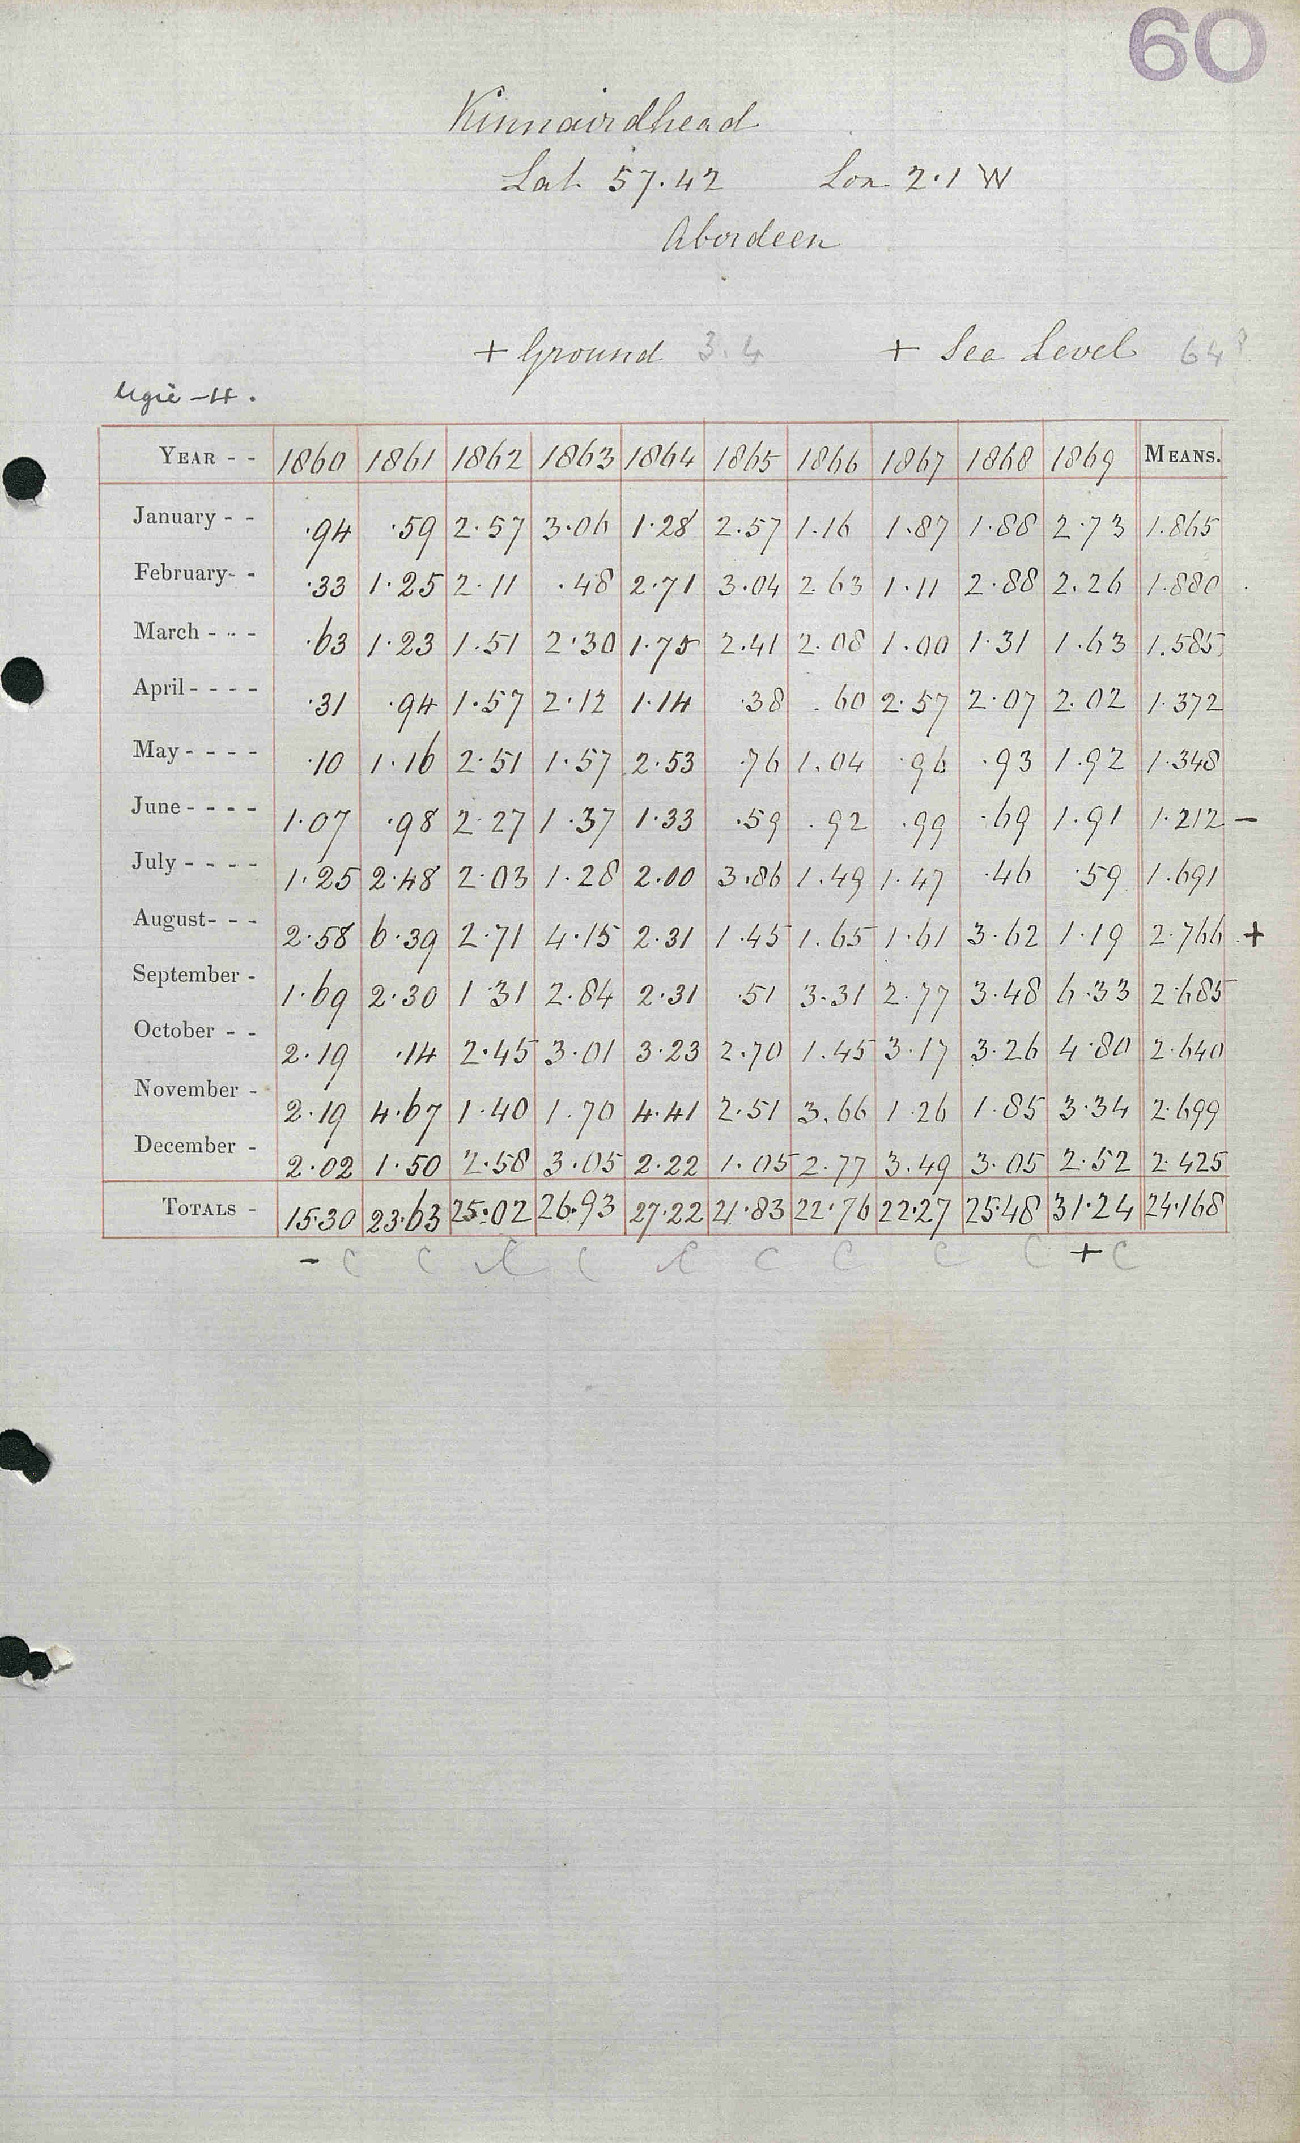 60
Kinnairdhead
Lat. 57.42 Lon 2.1 W
Aberdeen
+ Ground 3.4 + Sea Level 64?
Ugie -H.
YEAR - - 1860 1861 1862 1863 1864 1865 1866 1867 1868 1869 MEANS.
January - - .94 .59 2.57 3.06 1.28 2.57 1.16 1.87 1.88 2.73 1.865
February- - .33 1.25 2.11 .48 2.71 3.04 2.63 1.11 2.88 2.26 1.880
March - - - .63 1.23 1.51 2.30 1.75 2.41 2.08 1.00 1.31 1.63 1.585
April - - - - .31 .94 1.57 2.12 1.14 .38 .60 2.57 2.07 2.02 1.372
May - - - - .10 1.16 2.51 1.57 2.53 .76 1.04 .96 .93 1.92 1.348
June - - - - 1.07 .98 2.27 1.37 1.33 .59 .92 .99 .69 1.91 1.212 -
July - - - - 1.25 2.48 2.03 1.28 2.00 3.86 1.49 1.47 .46 .59 1.691
August- - - 2.58 6.39 2.71 4.15 2.31 1.45 1.65 1.61 3.62 1.19 2.766 +
September - 1.69 2.30 1 31 2.84 2.31 .51 3.31 2.77 3.48 6.33 2.685
October - - 2.19 .14 2.45 3.01 3.23 2.70 1.45 3.17 3.26 4.80 2.640
November - 2.19 4.67 1.40 1.70 4.41 2.51 3.66 1.26 1.85 3.34 2.699
December - 2.02 1.50 2.58 3.05 2.22 1.05 2.77 3.49 3.05 2.52 2.425
TOTALS - 15.30 23.63 25.02 26.93 27.22 21.83 22.76 22.27 25.48 31.24 24.168
- C C C C C C C C C + C